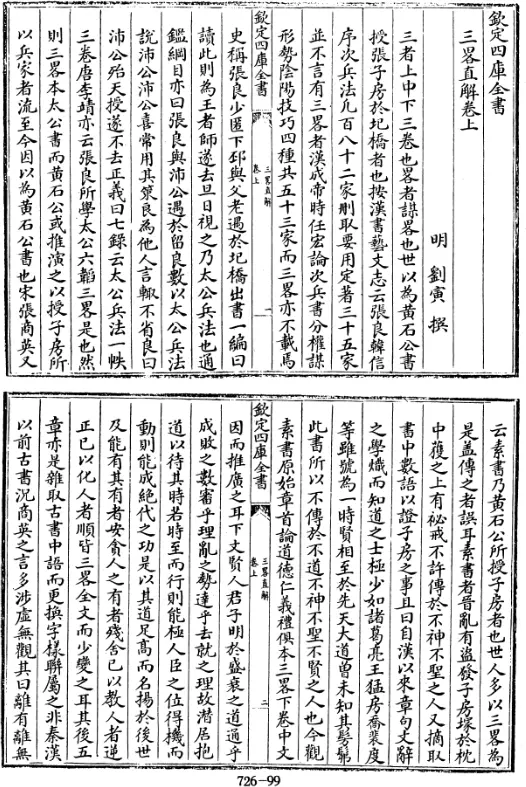 欽定四庫全書
三畧直解卷上
明 劉寅 撰
三者上中下三卷也畧者謀畧也世以為黃石公書
授張子房於圯橋者也按漢書藝文志云張良韓信
序次兵法凡百八十二家刪取要用定著三十五家
並不言有三畧者漢成帝時任宏論次兵書分權謀
形勢陰陽技巧四種共五十三家而三畧亦不載焉
欽定四庫全書
三畧直解
卷上
一
史稱張良少匿下邳與父老遇於圯橋出書一編曰
讀此則為王者師遂去旦日視之乃太公兵法也通
鑑綱目亦曰張良與沛公遇於留良數以太公兵法
說沛公沛公喜常用其策良為他人言輙不省良曰
沛公殆天授遂不去正義曰七錄云太公兵法一帙
三卷唐李靖亦云張良所學太公六韜三畧是也然
則三畧本太公書而黃石公或推演之以授子房所
以兵家者流至今因以為黃石公書也宋張商英又
云素書乃黃石公所授子房者也世人多以三畧為
是盖傳之者誤耳素書者晉亂有盜發子房塚於枕
中獲之上有祕戒不許傳於不神不聖之人又摘取
書中數語以證子房之事且曰自漢以來章句文辭
之學熾而知道之士極少如諸葛亮王猛房喬裴度
等雖號為一時賢相至於先天大道曽未知其髣髴
此書所以不傳於不道不神不聖不賢之人也今觀
素書原始章首論道德仁義禮俱本三畧下卷中文
欽定四庫全書
三畧直解
卷上
二
因而推廣之耳下文賢人君子明於盛衰之道通乎
成敗之數審乎理亂之勢達乎去就之理故潛居抱
道以待其時若時至而行則能極人臣之位得機而
動則能成絕代之功是以其道足髙而名揚於後世
及能有其有者安貪人之有者殘舍已以教人者逆
正已以化人者順皆三畧全文而少變之耳其後五
章亦是雜取古書中語而更換字様聯屬之非秦漢
以前古書況商英之言多涉虚無觀其曰離有離無
726-99